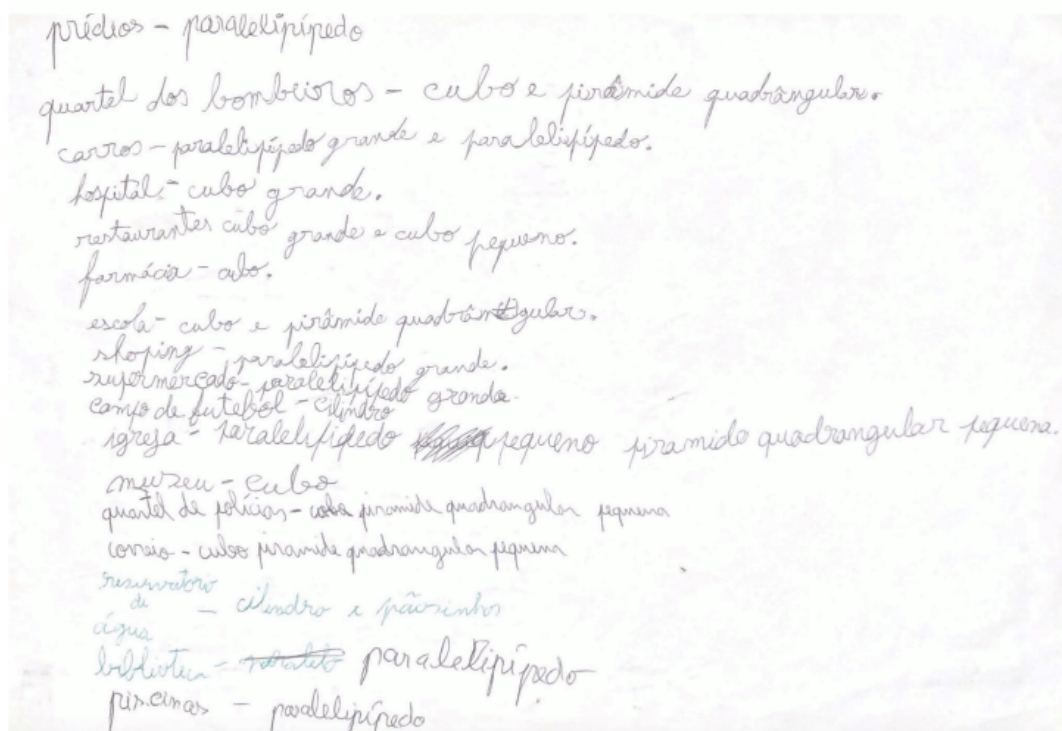 prédios - paralelipípedo
quartel dos bombeiros - cubo e pirâmide quadrângular.
carros - paralelipípedo grande e paralelipípedo.
hospital - cubo grande.
restaurantes cubo grande e cubo pequeno.
farmácia - cubo.
escola - cubo e pirâmide quadrângular.
shoping - paralelipípedo grande.
supermercado - paralelipípedo grande.
campo de futebol - cilindro
igreja - paralelipípedo pequeno piramide quadrangular pequena.
muzeu - cubo
quartel de polícias - cubo piramide quadrangular pequena
correio - cubo piramide quadrangular pequena
reservatório
de
água - cilindro e pãozinhos
biblioteca - paralelipípedo
piscinas - paralelipípedo